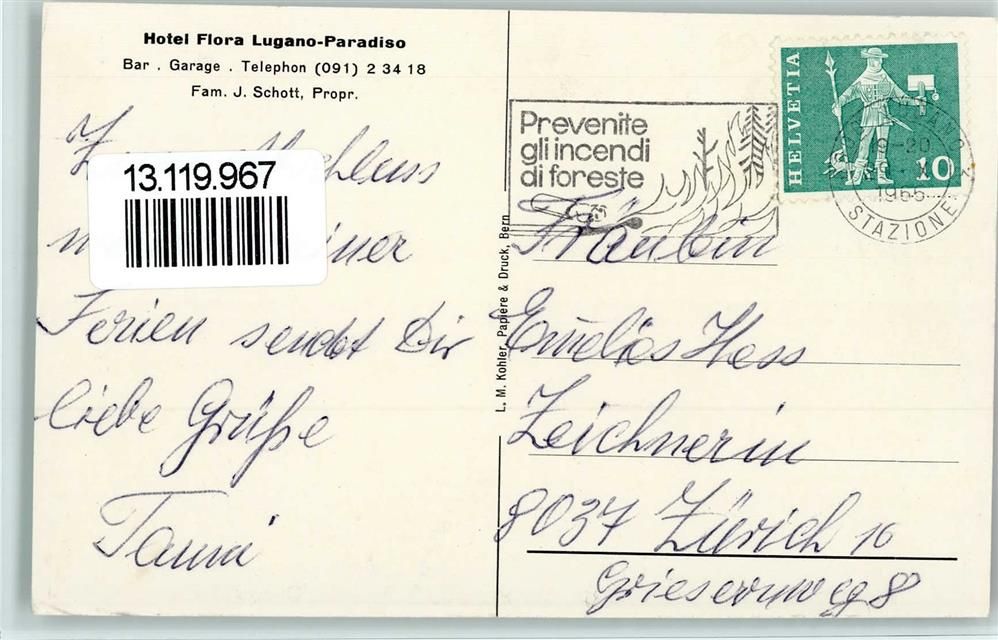 Hotel Flora Lugano-Paradiso
Bar . Garage . Telephon (091) 2 34 18
Fam. J. Schott, Propr.
13.119.967
Ferien sendet Dir
liebe Grüße
L. M. Kohler, Papiere & Druck, Bern
Prevenite
gli incendi
di foreste
HELVETIA
10
19-20
1966
STAZIONE
Fräulein
Hess
Zeichnerin
8037 Zürich 10